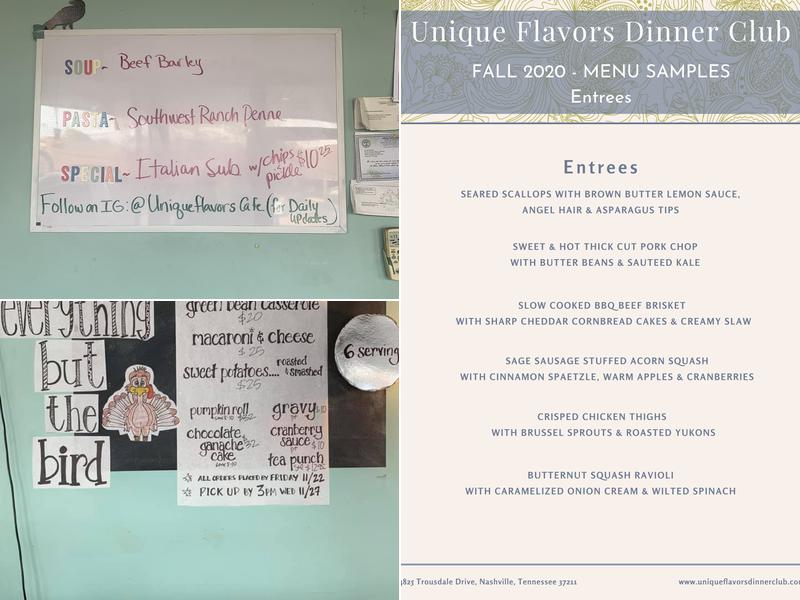 SOUP~ Beef Barley
PASTA~ Southwest Ranch Penne
SPECIAL~ Italian Sub w/chips $10.25
pickle
Follow on IG: @UniqueflavorsCafe (for Daily
updates)
everything
but
the
bird
green bean casserole
$20
macaroni & cheese
$25
sweet potatoes.... roasted
& smashed
$25
pumpkin roll
gravy
chocolate
ganache $32
cake
cranberry
sauce
tea punch
ALL ORDERS PLACED BY FRIDAY 11/22
PICK UP BY 3PM WED 11/27
6 serving
Unique Flavors Dinner Club
FALL 2020 - MENU SAMPLES
Entrees
Entrees
SEARED SCALLOPS WITH BROWN BUTTER LEMON SAUCE,
ANGEL HAIR & ASPARAGUS TIPS
SWEET & HOT THICK CUT PORK CHOP
WITH BUTTER BEANS & SAUTEED KALE
SLOW COOKED BBQ BEEF BRISKET
WITH SHARP CHEDDAR CORNBREAD CAKES & CREAMY SLAW
SAGE SAUSAGE STUFFED ACORN SQUASH
WITH CINNAMON SPAETZLE, WARM APPLES & CRANBERRIES
CRISPED CHICKEN THIGHS
WITH BRUSSEL SPROUTS & ROASTED YUKONS
BUTTERNUT SQUASH RAVIOLI
WITH CARAMELIZED ONION CREAM & WILTED SPINACH
3825 Trousdale Drive, Nashville, Tennessee 37211
www.uniqueflavorsdinnerclub.com